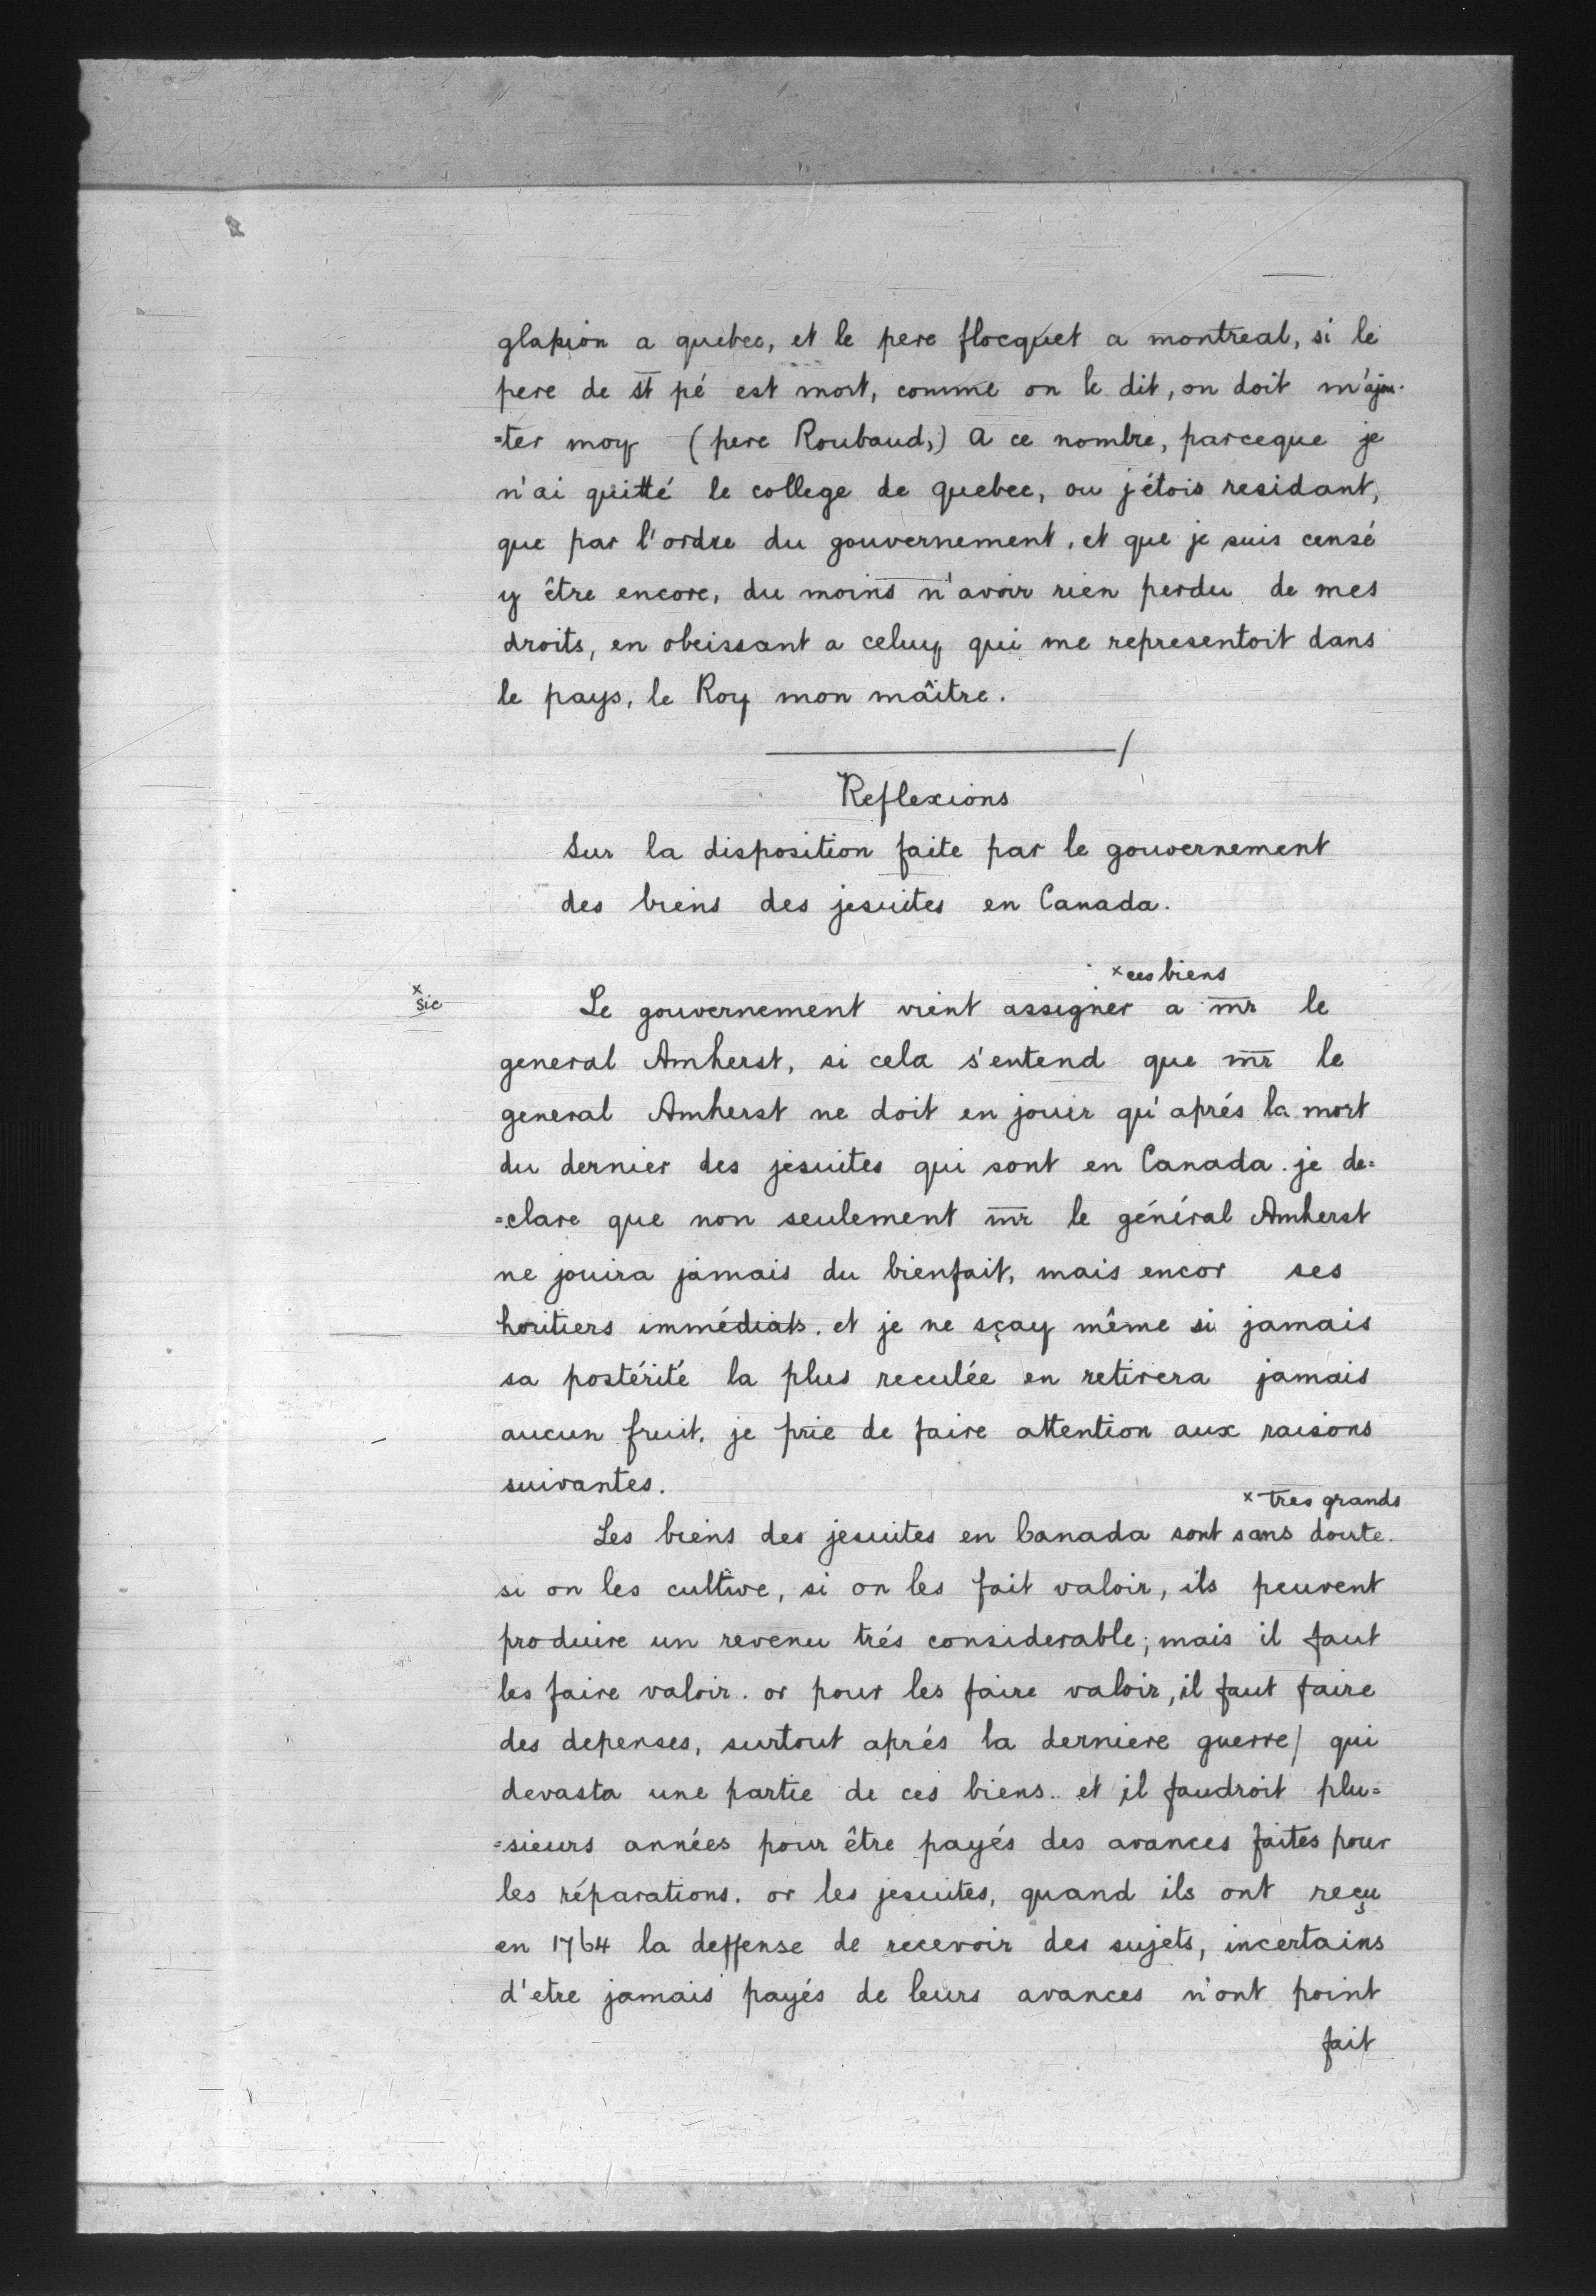 glapion a quebec, et le pere flocquet a montreal, si le
pere de st pé est mort, comme on le dit, on doit m'ajou-
=ter moy (pere Roubaud,) a ce nombre, parceque je
n'ai quitté le college de quebec, ou j'étois residant,
que par l'ordre du gouvernement, et que je suis censé
y être encore, du moins n'avoir rien perdu de mes
droits, en obeissant a celuy qui me representoit dans
le pays, le Roy mon maître.
Reflexions
Sur la disposition faite par le gouvernement
des biens des jesuites en Canada.
x ces biens
x sic
Le gouvernement vient assigner a mr le
general Amherst, si cela s'entend que mr le
general Amherst ne doit en jouir qu'aprés la mort
du dernier des jésuites qui sont en Canada. je de=
=clare que non seulement mr le général Amherst
ne jouira jamais du bienfait, mais encor ses
heritiers immédiats. et je ne sçay même si jamais
sa postérité la plus reculée en retirera jamais
aucun fruit. je prie de faire attention aux raisons
suivantes.
x tres grands
Les biens des jesuites en Canada sont sans doute.
si on les cultive, si on les fait valoir, ils peuvent
produire un revenu trés considerable; mais il faut
les faire valoir. or pour les faire valoir, il faut faire
des depenses, surtout aprés la derniere guerre/ qui
devasta une partie de ces biens. et il faudroit plu=
=sieurs années pour être payés des avances faites pour
les réparations. or les jesuites, quand ils ont reçu
en 1764 la deffense de recevoir des sujets, incertains
d'etre jamais payés de leurs avances n'ont point
fait